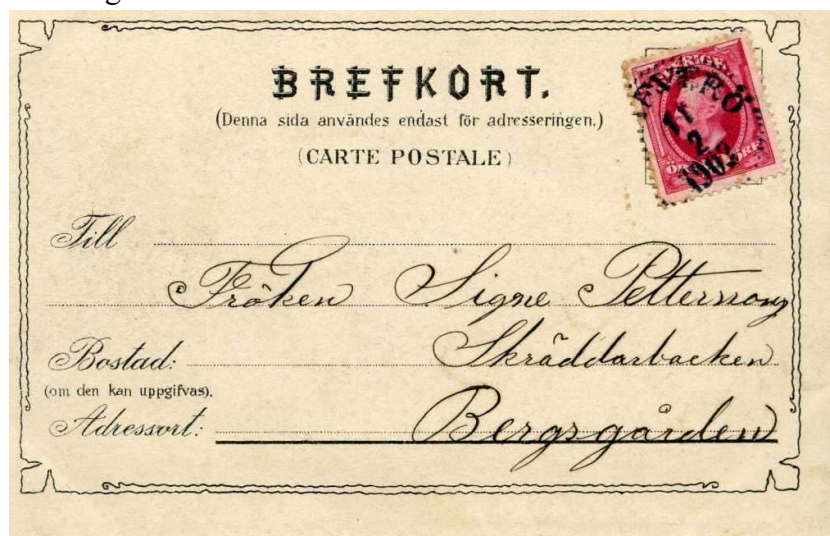 BREFKORT.
(Denna sida användes endast för adresseringen.)
(CARTE POSTALE)
11
2
1903
Till
Fröken Signe Petterssons
Bostad: Skräddarbacken
(om den kan uppgifvas).
Adressort: Bergsgården